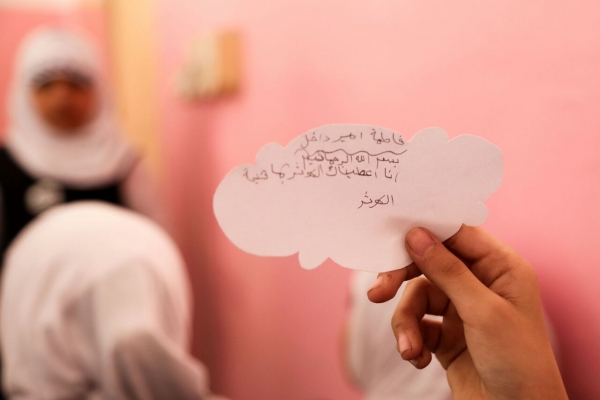 فاطمة امير داخل
بسم الله الرحمن الرحيم
انا اعطيناك الكوثر يا صاحبة
الكوثر